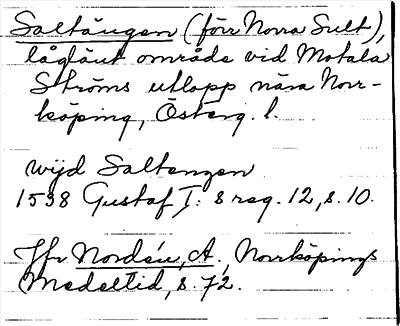 Saltängen (förr Nora Sult),
låglänt område vid Motala
Ströms utlopp nära Norr-
köping, Österg. l.
wijd Saltengen
1538 Gustaf I: s reg. 12, s. 10.
Jfr Nordén, A., Norrköpings
Medeltid, s. 72.